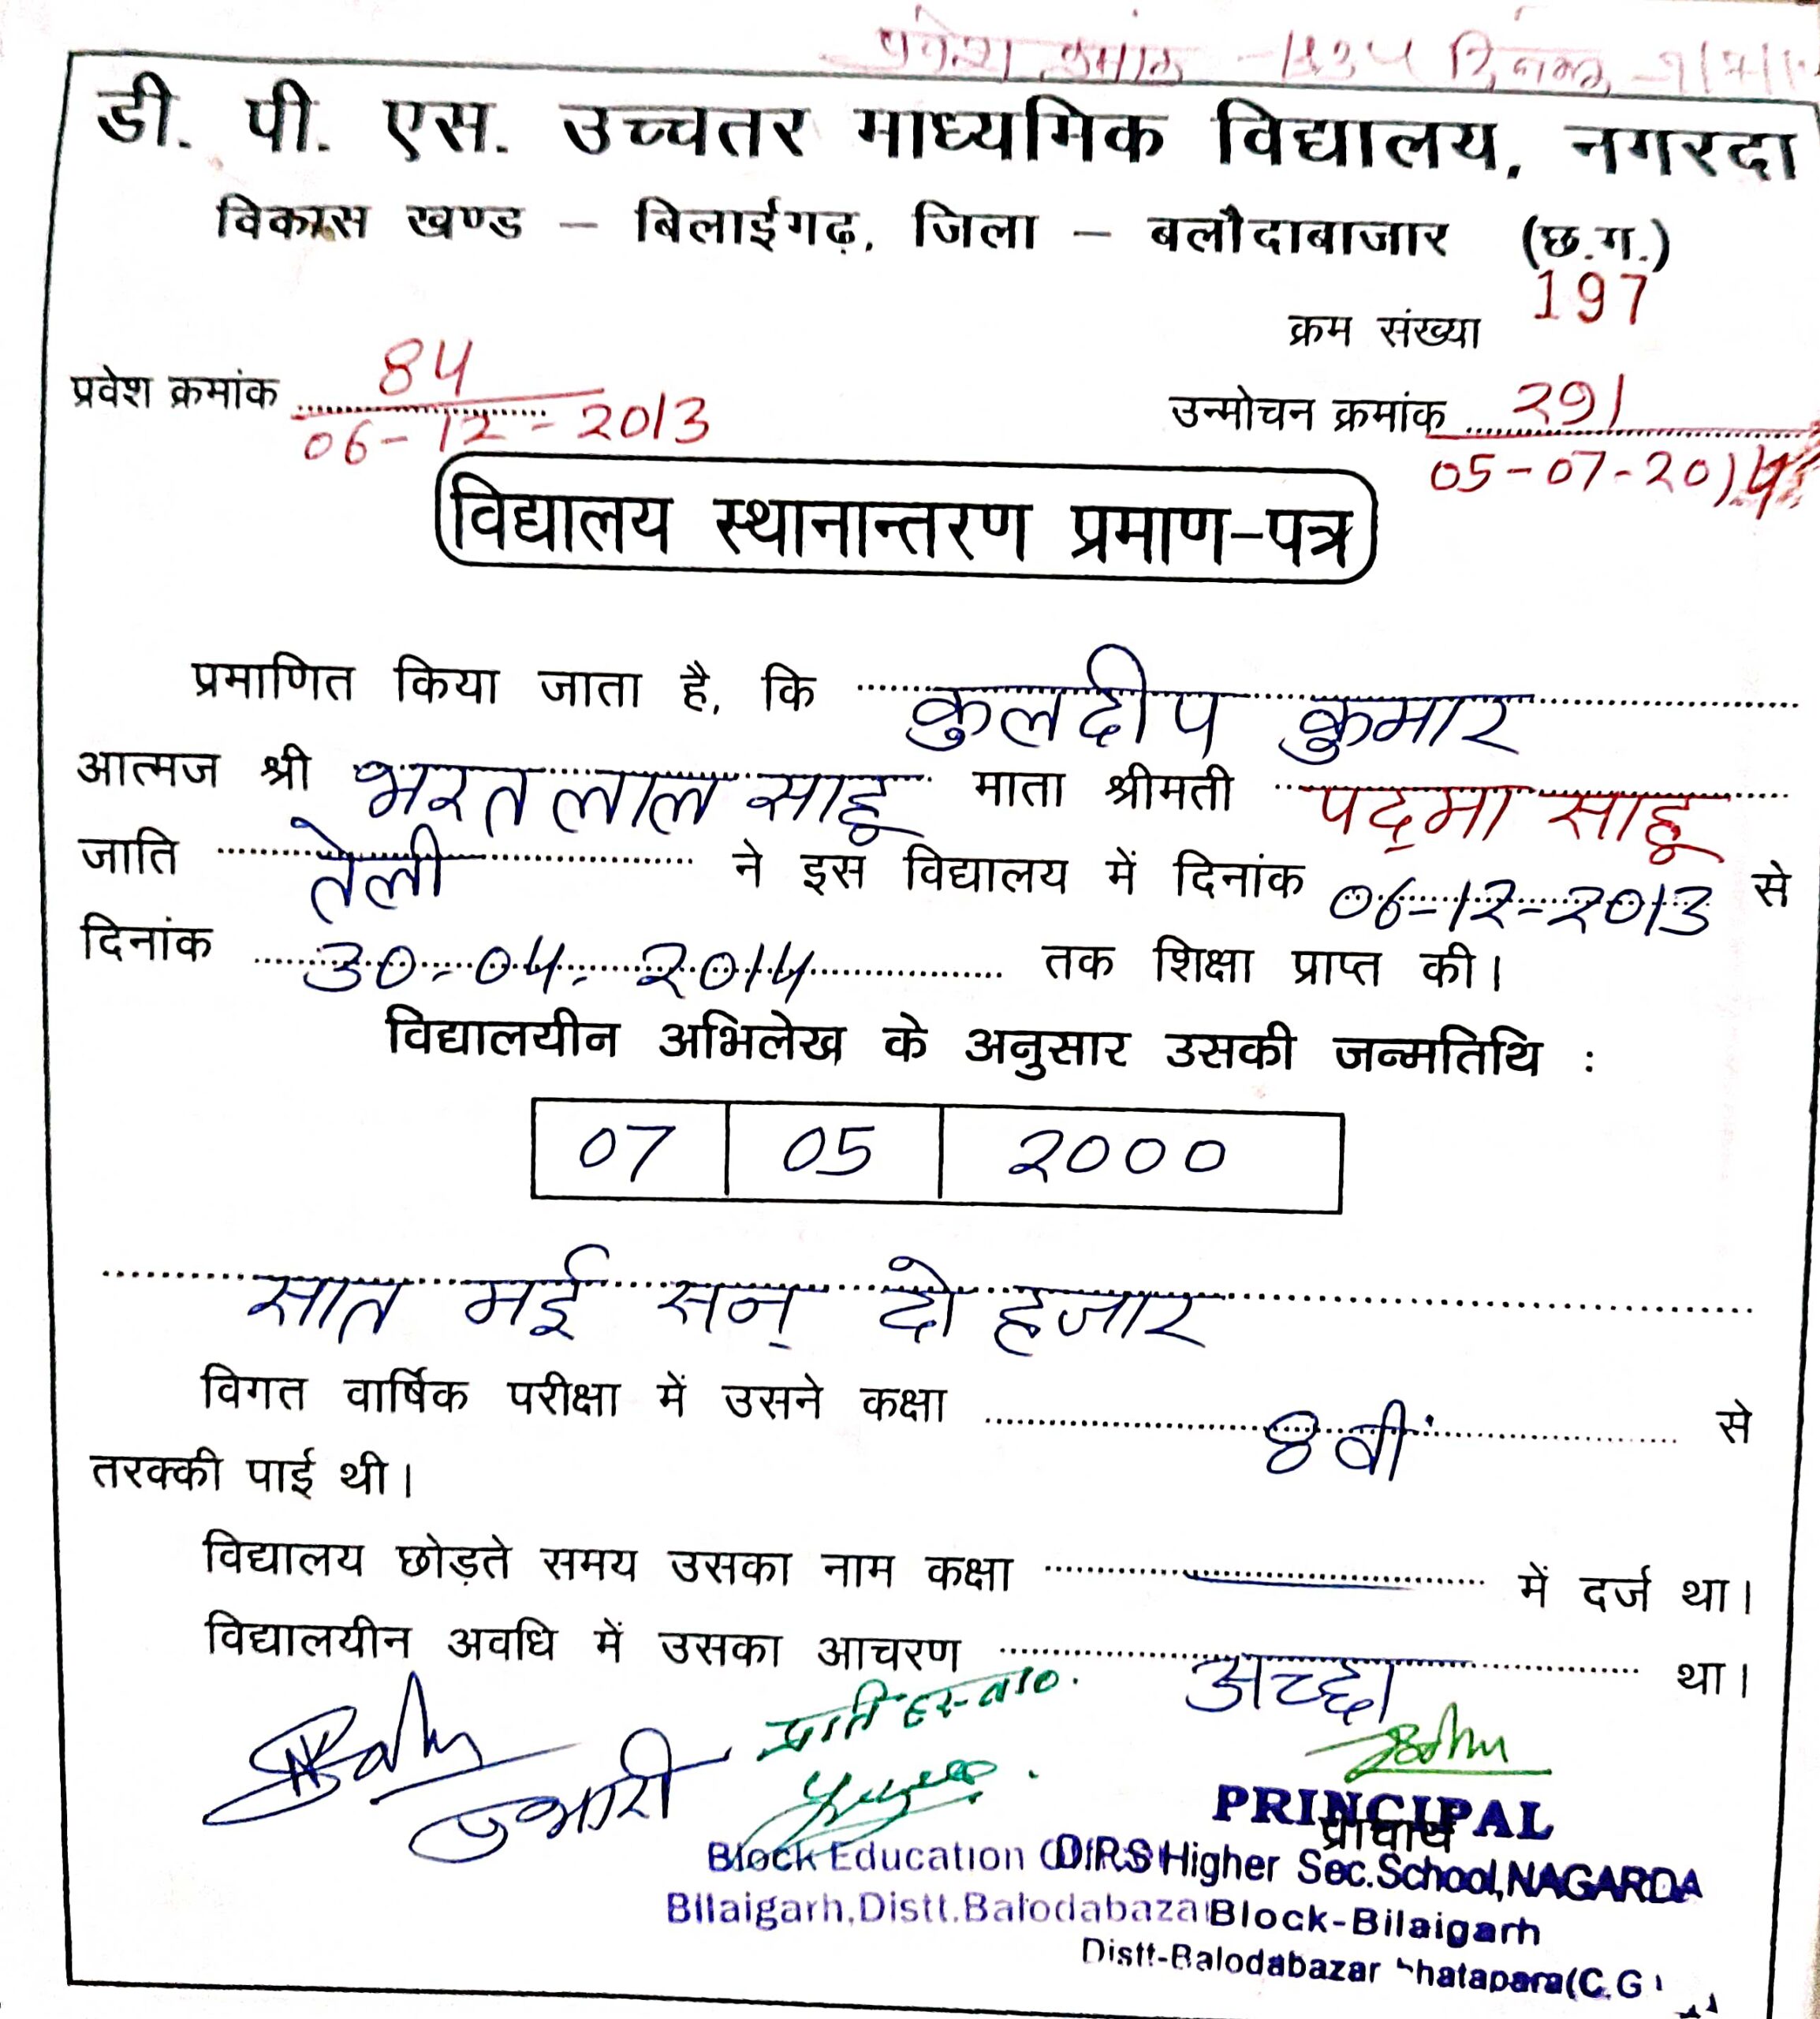 प्रवेश क्रमांक
डी. पी. एस. उच्चतर माध्यमिक विद्यालय, नगरदा
विकास खण्ड – बिलाईगढ़, जिला – बलौदाबाजार (छ.ग.)
क्रम संख्या 197
प्रवेश क्रमांक 84
06-12-2013
उन्मोचन क्रमांक 291
05-07-2014
विद्यालय स्थानान्तरण प्रमाण-पत्र
प्रमाणित किया जाता है, कि कुलदीप कुमार
आत्मज श्री भरत लाल साहू माता श्रीमती पद्मा साहू
जाति तेली ने इस विद्यालय में दिनांक 06-12-2013 से
दिनांक 30-04-2014 तक शिक्षा प्राप्त की।
विद्यालयीन अभिलेख के अनुसार उसकी जन्मतिथि :
07 05 2000
सात मई सन् दो हजार
विगत वार्षिक परीक्षा में उसने कक्षा 8वीं से
तरक्की पाई थी।
विद्यालय छोड़ते समय उसका नाम कक्षा में दर्ज था।
विद्यालयीन अवधि में उसका आचरण अच्छा था।
PRINCIPAL
प्राचार्य
Block Education Higher Sec.School,NAGARDA
Bilaigarh,Distt.Balodabaza Block-Bilaigarh
Distt-Balodabazar (C.G